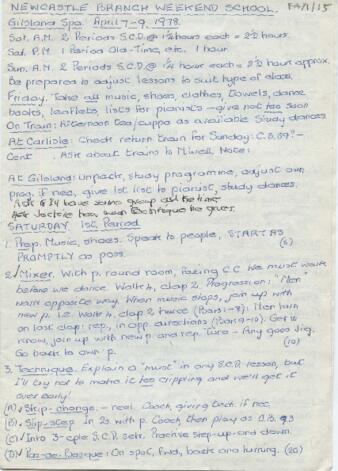 NEWCASTLE BRANCH WEEKEND SCHOOL.
Gilsland Spa. April 7-9, 1978.
Sat. A.M. 2 Periods S.C.D. @ 1¼ hours each = 2½ hours.
Sat. P.M. 1 Period Old-Time, etc. 1 hour.
Sun. A.M. 2 Periods S.C.D. @ 1¼ hour each = 2½ hours approx.
Be prepared to adjust lessons to suit type of class.
Friday. Take all music, shoes, clothes, towels, dance
books, leaflets, lists for pianists - give not too soon
On Train: Afternoon tea/cuppa as available Study dances
At Carlisle: Check return train for Sunday:
Cent. Ask about trains to Note:
At Gilsland: Unpack, study programme, adjust own
prog. if nec, give 1st list to pianist, study dances.
Ask if I'll have same group all the time
Ask
SATURDAY 1st Period
1. Prep. Music, shoes. Speak to people, START AS
PROMPTLY as poss. (5)
2. Mixer. With p. round room, facing C.C. We must walk
before we dance. Walk 4, clap 2. Progression: "Men
walk opposite way. When music stops, join up with
new p. i.e. Walk 4, clap 2 twice (Bars 1-8): Men turn
on last clap: rep. in opp. directions (Bars 9-16). Get to
know, join up with new p and rep. Tune - Any good jig.
Go back to own p. (10)
3. Technique. Explain a "must" in any S.C.D. lesson, but
I'll try not to make it too crippling and we'll get it
over early!
(A) Skip-change. - reel. Coach, giving back if nec.
(B) Slip-step in 2s with p. Coach, then play as
(C) Into 3-cple S.C.D. sets. Practise step-up and down.
(D) Pas-de-Basque: On spot, fwd, back and turning. (20)